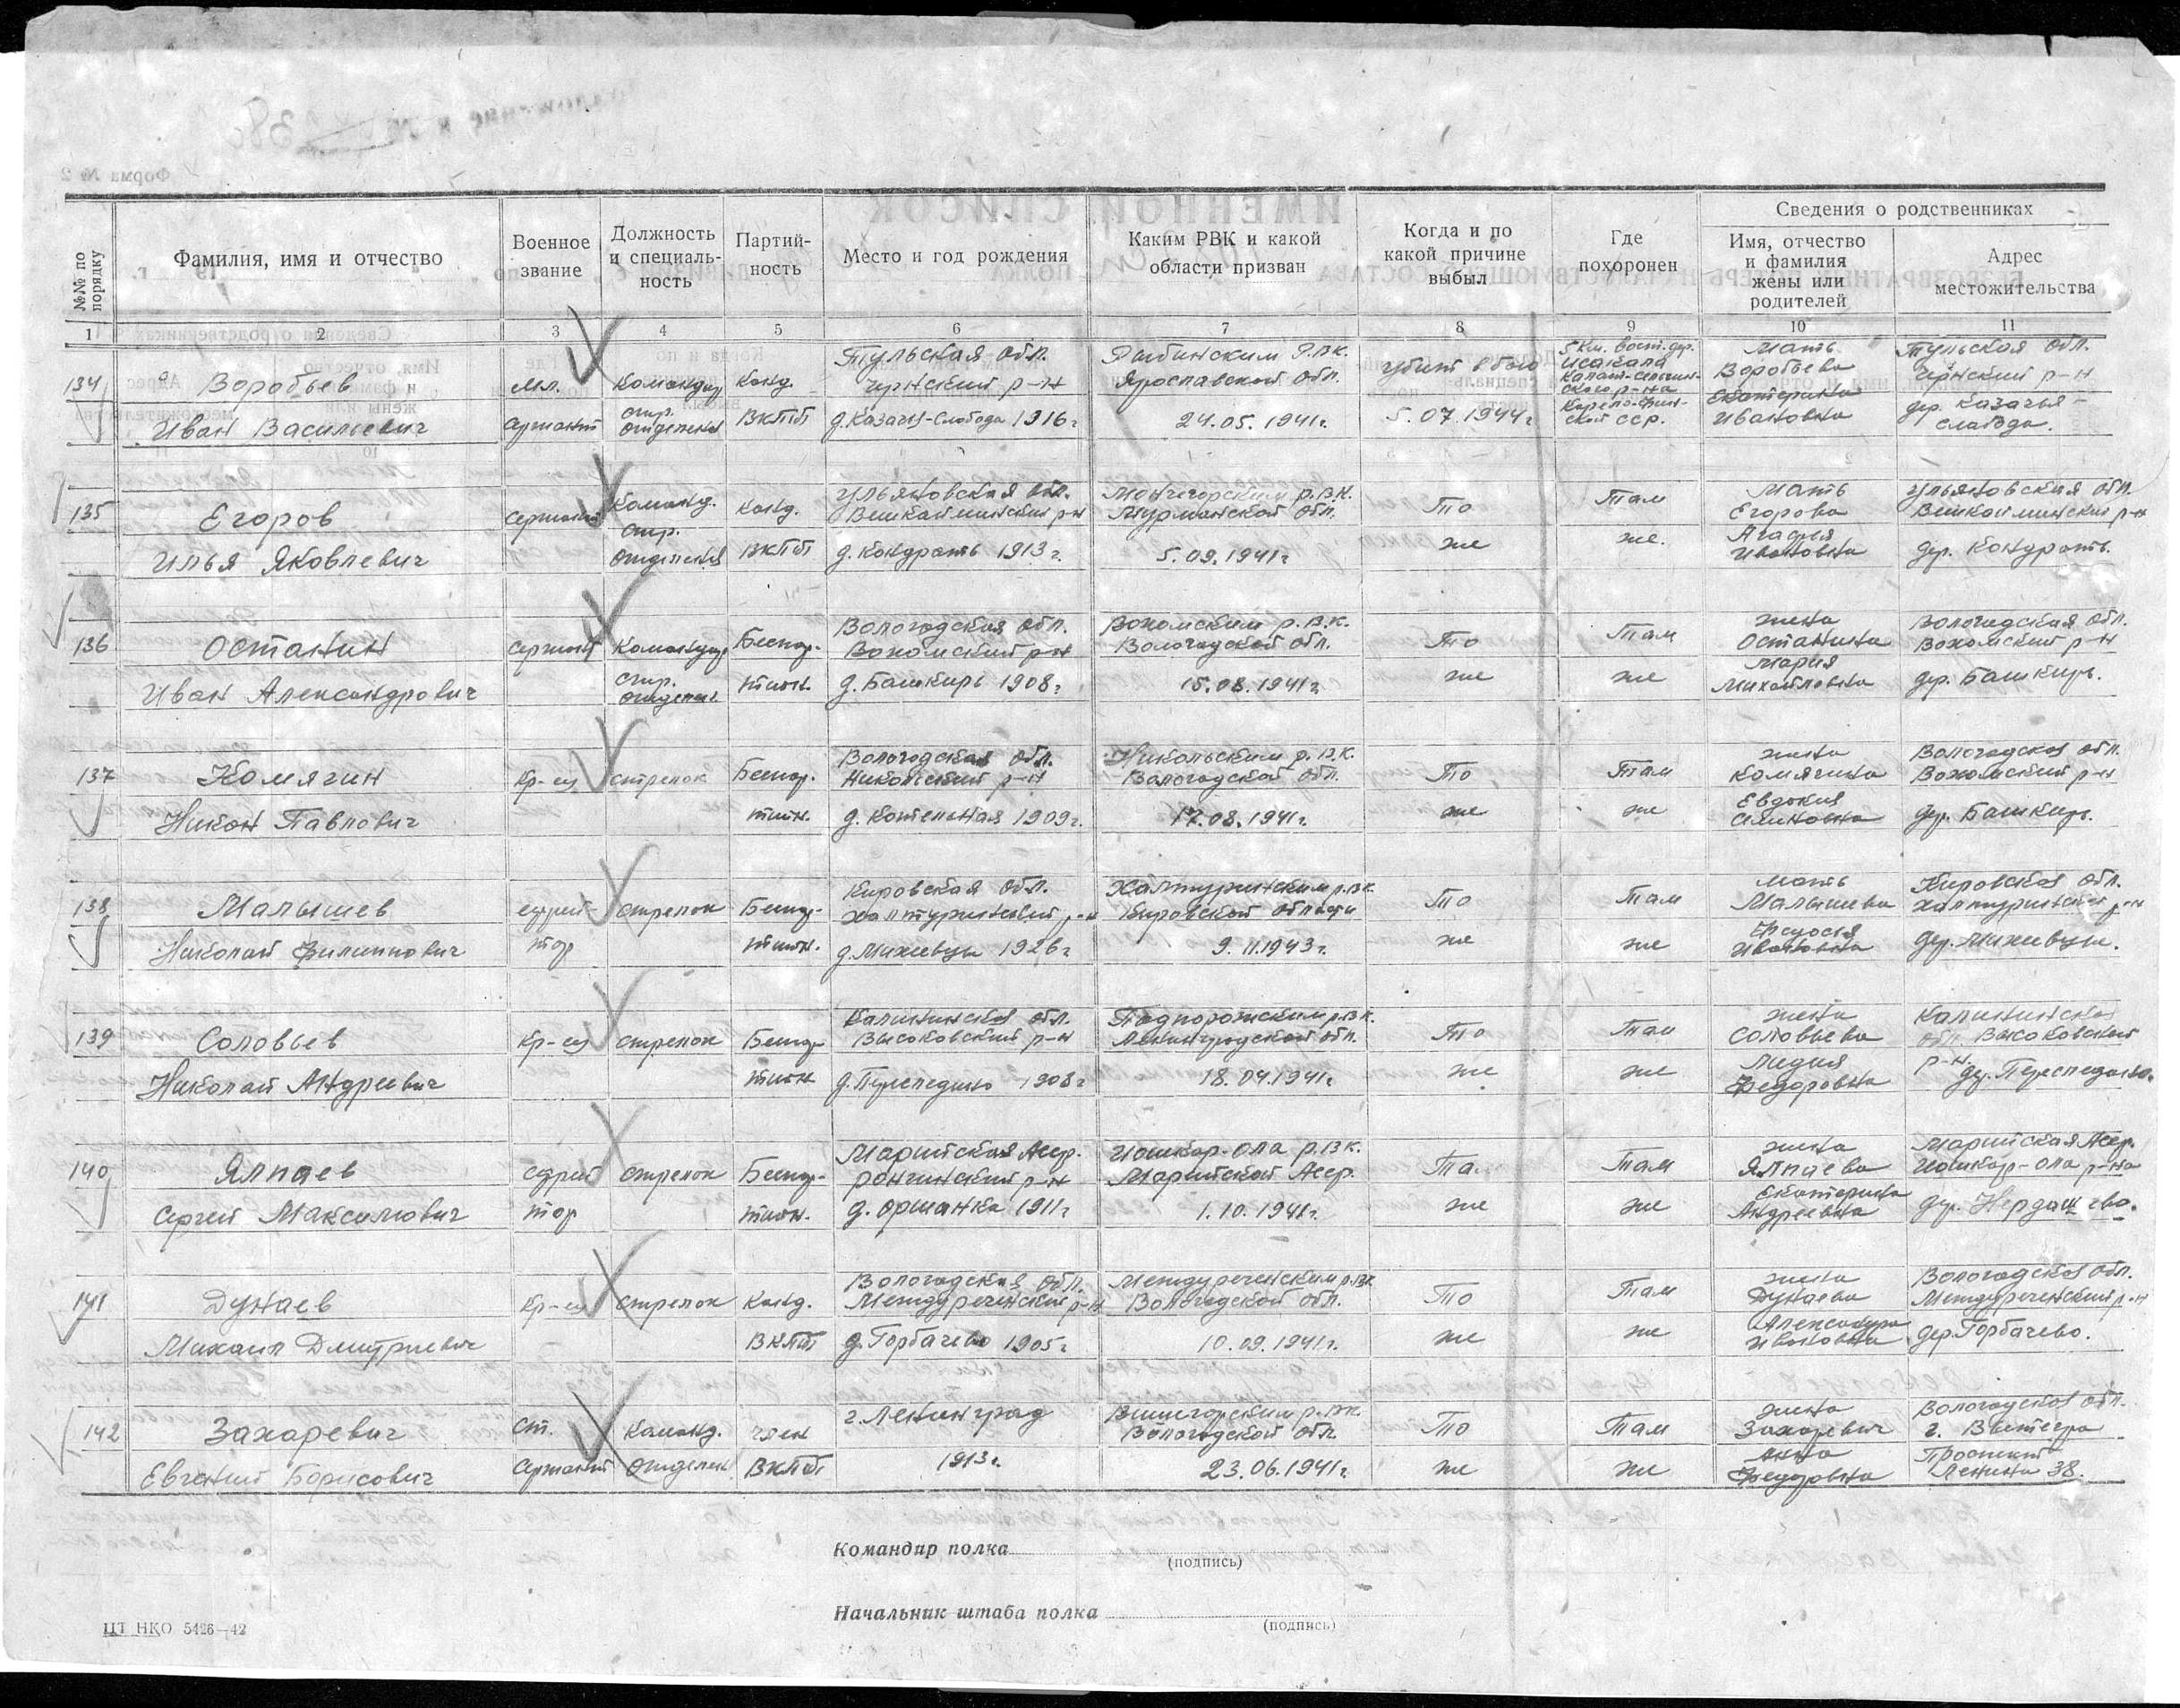 Форма № 2
№№ по порядку
Фамилия, имя и отчество
Военное звание
Должность и специаль-ность
Партий-ность
Место и год рождения
Каким РВК и какой области призван
Когда и по какой причине выбыл
Где похоронен
Сведения о родственниках
Имя, отчество и фамилия жены или родителей
Адрес местожительства
1 2 3 4 5 6 7 8 9 10 11
134 Воробьев Иван Васильевич
мл. сержант
Командир стр. отделения
Канд. ВКПб
Тульская обл.
Чернский р-н
д. Казачья-Слобода 1916г
Рыбинским Р.В.К.
Ярославской обл.
24.05.1941г.
убит в бою
5.07.1944г
5 км. вост. дер.
Карело-Фин-
ской ССР.
Мать
Воробьева
Екатерина
Ивановна
Тульская обл.
Чернский р-н
дер. Казачья-
слобода.
135 Егоров Илья Яковлевич
Сержант
Команд. стр. отделения
Канд. ВКПб
Ульяновская обл.
Вешкайминский р-н
д. Кондрать 1913г.
Мончегорским р.в.к.
Мурманской обл.
5.09.1941г
То же
Там же.
Мать
Егорова
Агафья
Ивановна
Ульяновская обл.
Вешкайминский р-н
дер. Кондрать.
136 Останин Иван Александрович
Сержант
Командир стр. отделен.
Беспар-тийн.
Вологодская обл.
Вохомский р-н
д. Башкирь 1908г
Вохомским р.в.к.
Вологодской обл.
15.08.1941г
То же
Там же
жена
Останина
Мария
Михайловна
Вологодская обл.
Вохомский р-н
дер. Башкирь.
137 Комягин Никон Павлович
Кр-ец
стрелок
Беспар. тийн.
Вологодская обл.
Никольский р-н
д. Котельная 1909г.
Никольским р.в.к.
Вологодской обл.
17.08.1941г.
То же
Там же
жена
Комягина
Евдокия
Вологодская обл.
Вохомский р-н
дер. Башкирь.
138 Малышев Николай Филиппович
ефрей-тор
стрелок
Беспар-тийн.
Кировская обл.
Халтуринский р-н
1926г
Халтуринским р.в.к.
Кировской области
9.11.1943г.
То же
Там же
Мать
Малышева
Ивановна
Кировская обл.
Халтуринский р-н
139 Соловьев Николай Андреевич
Кр-ец
стрелок
Беспар тийн
Калининская обл.
Высоковский р-н
1908г
Подпорожским р.в.к.
Ленинградской обл.
18.04.1941г
То же
Там же
жена
Соловьева
Лидия
Федоровна
Калининская
обл. Высоковский
р-н
140 Ялпаев Сергей Максимович
ефрей тор
стрелок
Беспар-тийн.
Марийская Асср.
Ронгинский р-н
д. Оршанка 1911г
Йошкар-Ола р.в.к.
Марийской Асср.
1.10.1941г.
То же
Там же
жена
Ялпаева
Екатерина
Андреевна
Марийская Асср.
Йошкар-Ола р-на
141 Дунаев Михаил Дмитриевич
Кр-ец
стрелок
Канд. ВКПб
Вологодская обл.
Междуреченский р-н
д. Горбачево 1905г
Междуреченским р.в.к
Вологодской обл.
10.09.1941г.
То же
Там же
жена
Дунаева
Александра
Ивановна
Вологодская обл.
Междуреченский р-н
дер. Горбачево.
142 Захаревич Евгений Борисович
Ст. Сержант
Команд. отделен
член ВКПб
г. Ленинград
1913г.
Вытегорским р.в.к.
Вологодской обл.
23.06.1941г.
То же
Там же
жена
Захаревич
Анна
Федоровна
Вологодская обл.
г. Вытегра
Проспект
Ленина 38.
Командир полка
(подпись)
Начальник штаба полка
(подпись)
ЦТ НКО 5426—42